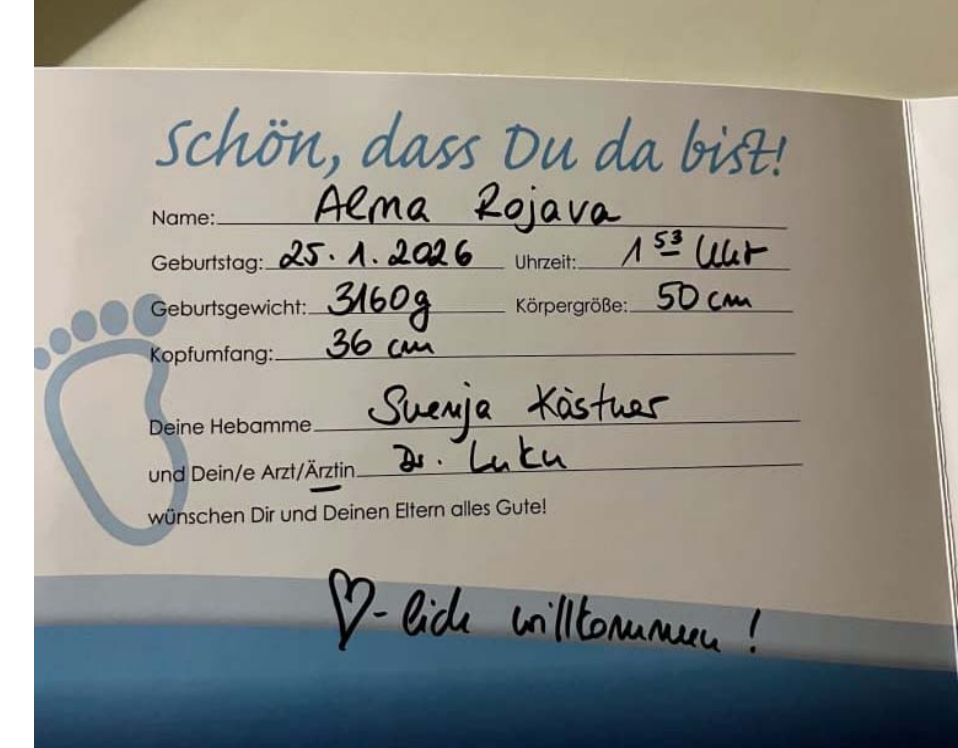 Schön, dass Du da bist!
Name: Alma Rojava
Geburtstag: 25.1.2026 Uhrzeit: 1 53 Uhr
Geburtsgewicht: 3160g Körpergröße: 50 cm
Kopfumfang: 36 cm
Deine Hebamme Svenja Kästner
und Dein/e Arzt/Ärztin Dr.
wünschen Dir und Deinen Eltern alles Gute!
♡-lich willkommen!